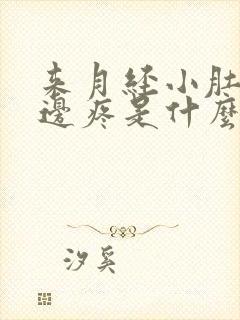 来月经小肚
邊疼是什麼
汐奚